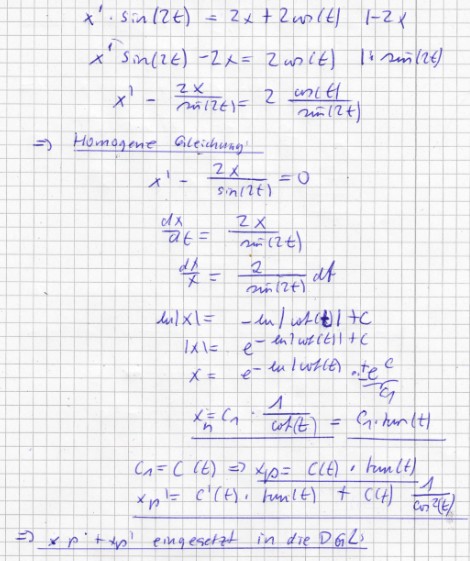 x' · sin(2t) = 2x + 2cos(t) |-2x
x' sin(2t) - 2x = 2cos(t) |: sin(2t)
x' - 2x/sin(2t) = 2 cos(t)/sin(2t)
=> Homogene Gleichung:
x' - 2x/sin(2t) = 0
dx/dt = 2x/sin(2t)
dx/x = 2/sin(2t) dt
ln|x| = -ln|cot(t)| + C
|x| = e^(-ln|cot(t)| + C)
x = e^(-ln|cot(t)) · ±e^C C₁
xₕ = C₁ · 1/cot(t) = C₁ · tan(t)
C₁ = C(t) => xp = C(t) · tan(t)
xp' = C'(t) · tan(t) + C(t) 1/cos²(t)
=> xp + xp' eingesetzt in die DGL: